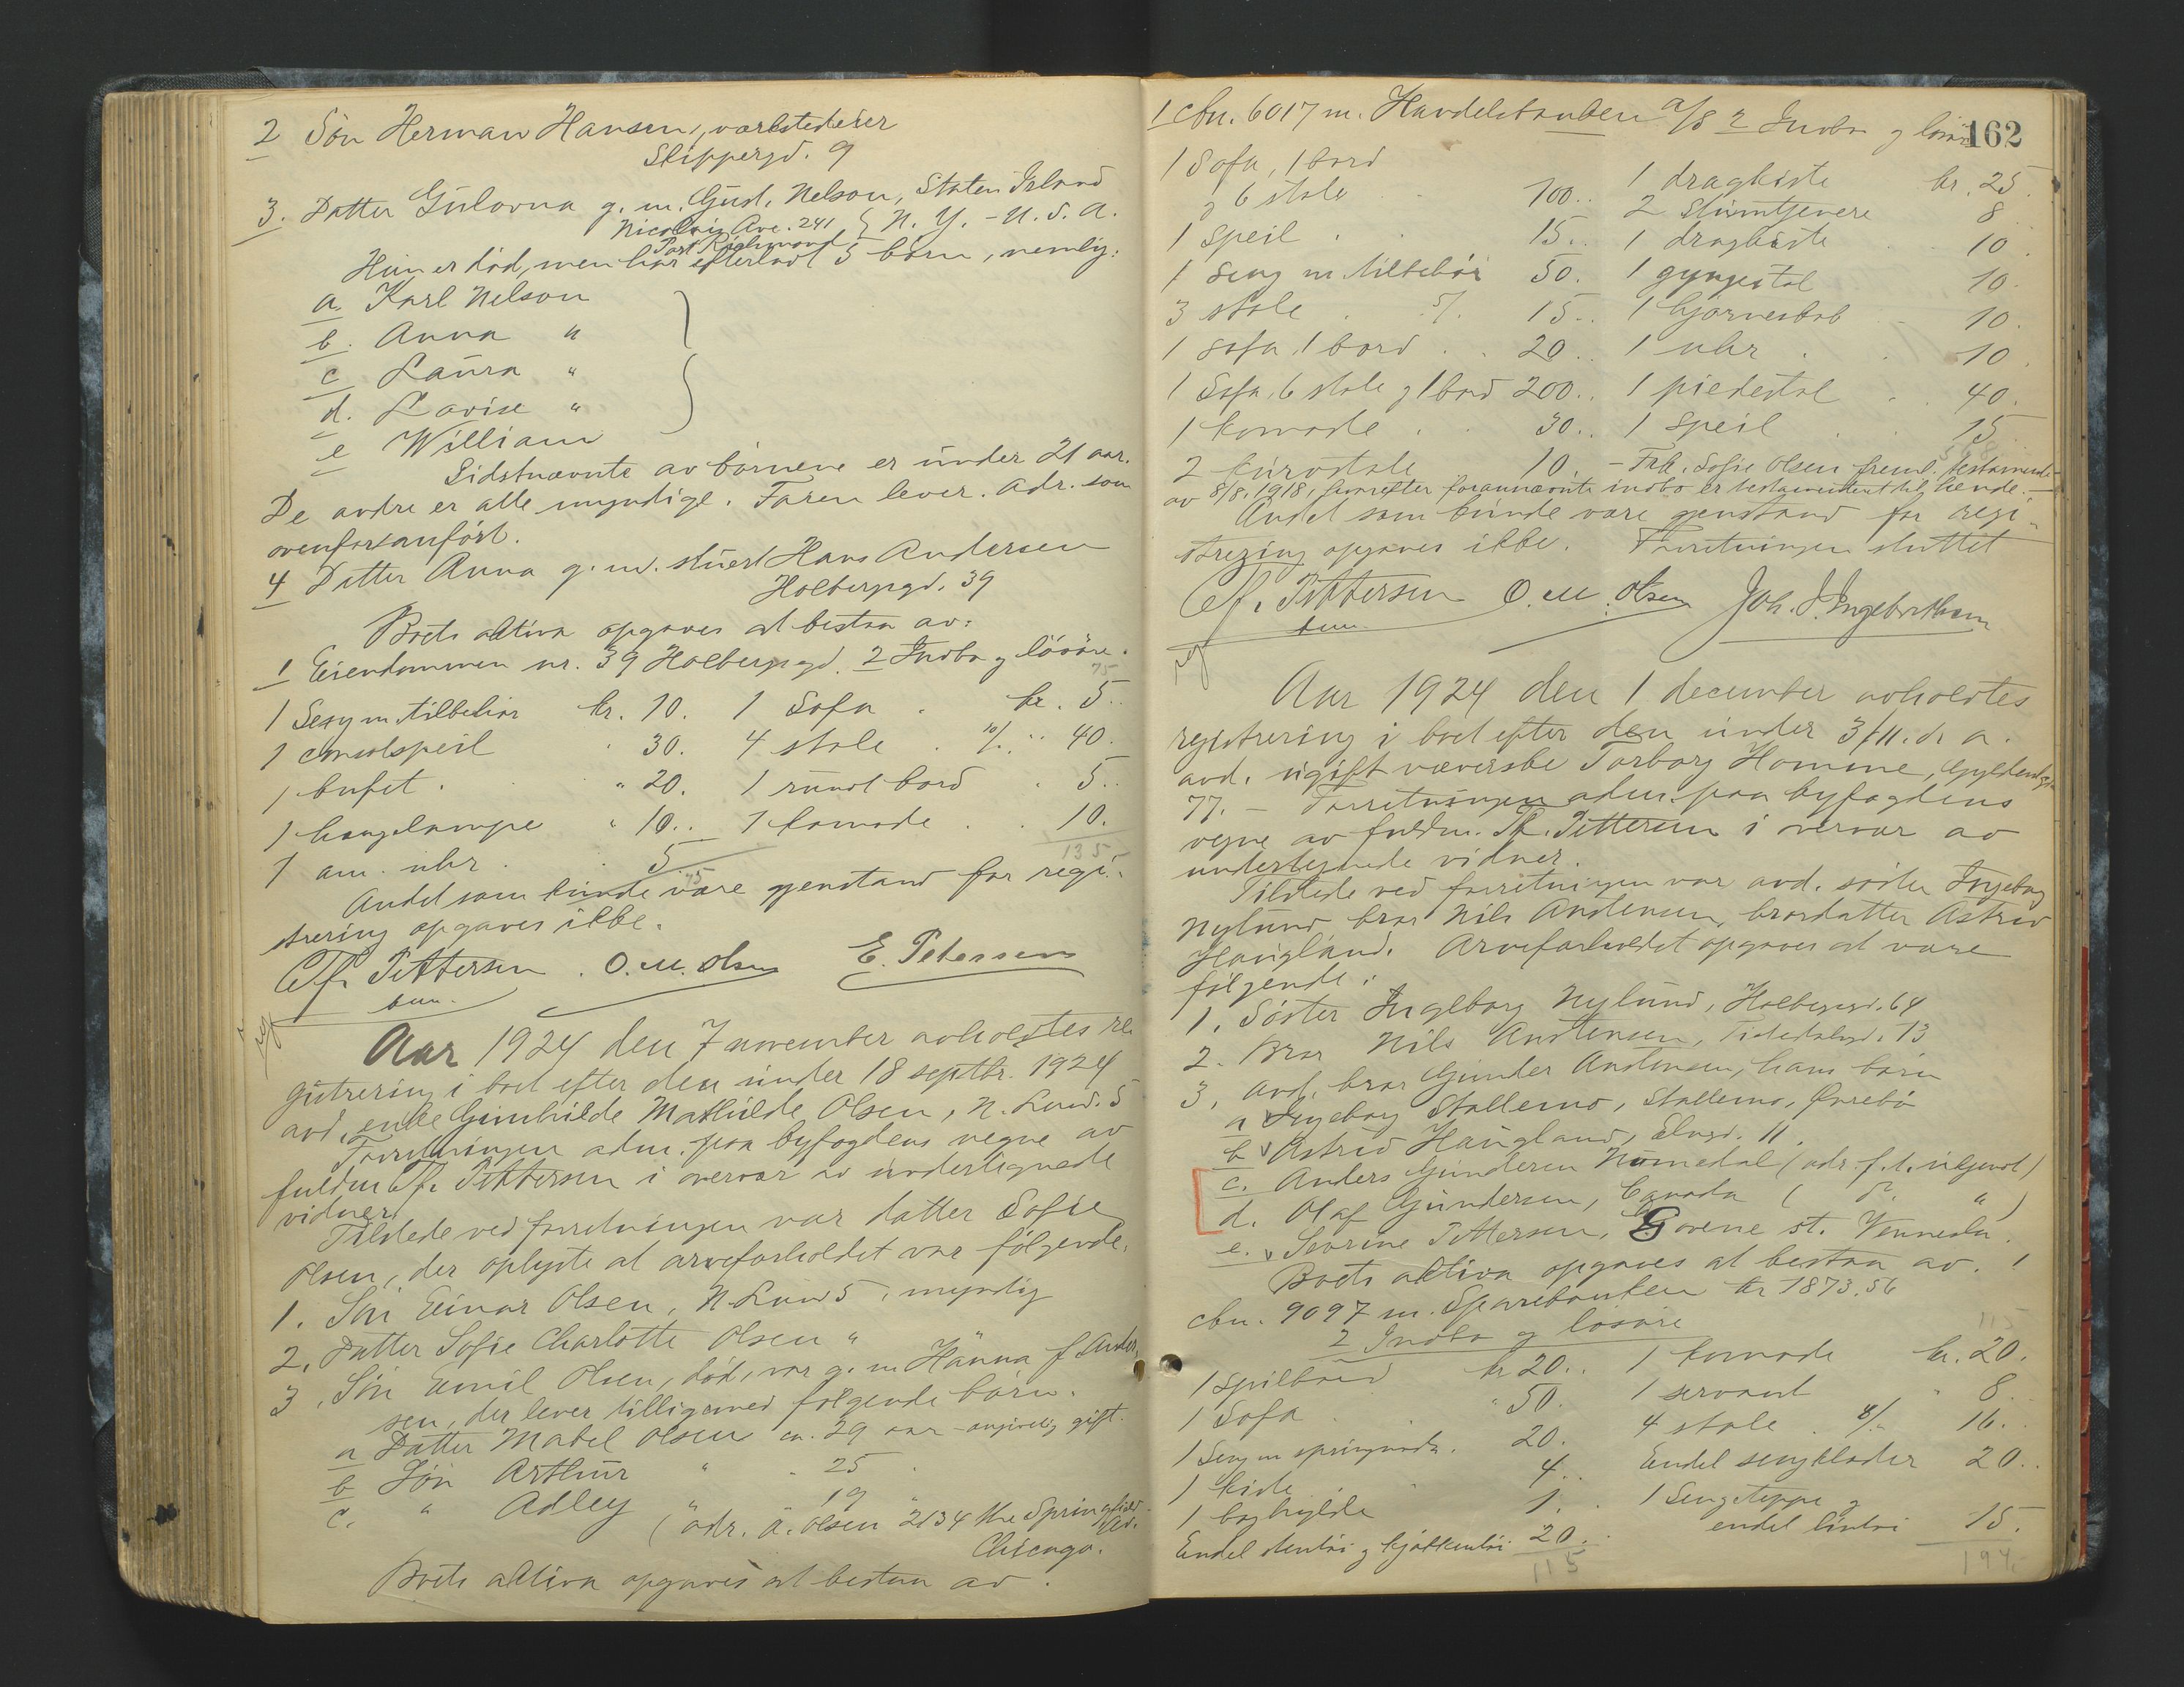 2 Søn Herman Hansen, verkstedeier
Skippergd. 9
3. Datter Gulovna g. m. Gust. Nelson, Staten Island
Nicolai Ave. 241 } N. Y. - U. S. A.
Port Richmond
Hun er død, men har efterladt 5 børn, nemlig:
a. Karl Nelson
b. Anna "
c Laura "
d. Lovise "
e William
Sidstnævnte av børnene er under 21 aar.
De andre er alle myndige. Faren lever. Adr. som
ovenforanført.
4 Datter Anna g. m. stuert Hans Andersen
Holbergsgd. 39
Boets aktiva opgaves at bestaa av:
1 Eiendommen nr. 39 Holbergsgd. 2 Indbo og løsøre.
75
1 Seng m. tilbehør kr. 10. 1 Sofa . kr. 5..
1 consolspeil " 30. 4 stole . 10/. " 40.
1 bufet . " 20. 1 rundt bord " 5..
1 hængelampe " 10.. 1 komode . . 10.
1 am. uhr . . 5
135
75
Andet som kunde være gjenstand for regi-
strering opgaves ikke.
Th. Pettersen O. M. Olsen E. Petersen
fm.
Aar 1924 den 7 november avholdtes re
gistrering i boet efter den under 18 septbr. 1924
avd. enke Gunhilde Mathilde Olsen, N. Lund. 5
Forretningen adm. paa byfogdens vegne av
fuldm. Th. Pettersen i overvær av undertegnede
vidner.
Tilstede ved forretningen var datter Sofie
Olsen, der oplyste at arveforholdet var følgende.
1. Søn Einar Olsen, N. Lund 5, myndig
2. Datter Sofie Charlotte Olsen "
3. Søn Emil Olsen, død, var g. m Hanna f. Ander-
sen, der lever tilligemed følgende børn.
a Datter Mabel Olsen ca. 29 aar - angivelig gift.
b Søn Arthur " . 25 .
c. " Adley " 19 "
(adr. A. Olsen 2134 the Springfield Av.
Chicago.
Boets aktiva opgaves at bestaa av .
162
1 cbn. 6017 m. Handelsbanken a/s 2 Indbo og løsøre
1 Sofa, 1 bord
og 6 stole . . 100.. 1 dragkiste kr. 25.
2 stumtjenere 8
1 speil . . 15.. 1 dragkiste . . 10.
1 seng m tilbehør 50. 1 gyngestol 10.
3 stole . 5/. 15.. 1 hjørneskab . 10.
1 sofa 1 bord . . 20.. 1 uhr . . 10.
1 Sofa, 6 stole og 1 bord 200.. 1 piedestal . . 40.
1 komode . . 30.. 1 speil . . 15
2 kurvstole . 10. - Frk. Sofie Olsen freml. testamente
av 8/8. 1918, hvorefter forannævnte indbo er testamentert til hende. -
Andet som kunde være gjenstand for regi-
strering opgaves ikke. Forretningen sluttet
Th. Pettersen O. M. Olsen Joh. J. Ingebretsen
fm.
Aar 1924 den 1 december avholdtes
registrering i boet efter den under 3/11. d. a.
avd. ugift væverske Torborg Homme, Gyldenløvesgd
77. - Forretningen adm. paa byfogdens
vegne av fuldm. Th. Pettersen i overvær av
undertegnede vidner.
Tilstede ved forretningen var avd. søster Ingeborg
Nylund, bror Nils Andersen, brordatter Astrid
Haugland. Arveforholdet opgaves at være
følgende:
1. Søster Ingeborg Nylund, Holbergsgd. 64
2. Bror Nils Andersen, 13
3. avd. bror Gunder Andersen, hans børn
a Ingeborg Stallemo, Stallemo, Øvrebø
b Astrid Haugland, Elvegd. 11.
c. Anders Gundersen Numedal (adr. f. t. ukjendt)
d. Olaf Gundersen, Canada ( do. " )
e. Severine Pettersen, Grovene st. Vennesla.
Boets aktiva opgaves at bestaa av. 1
cbn. 9097 m. Sparebanken kr 1873.56
2 Indbo og løsøre
115
1 spilbord kr 20.. 1 komode kr. 20.
1 Sofa . . " 50. 1 servant " 8..
1 Seng m springmadr. 20. 4 stole . 4/. 16..
1 kiste " 4.. Endel sengklæder 20..
1 boghylde 1.. 1 Sengeteppe og
Endel stentøi og kjøkkentøi 20. endel lintøi 15.
115 194.